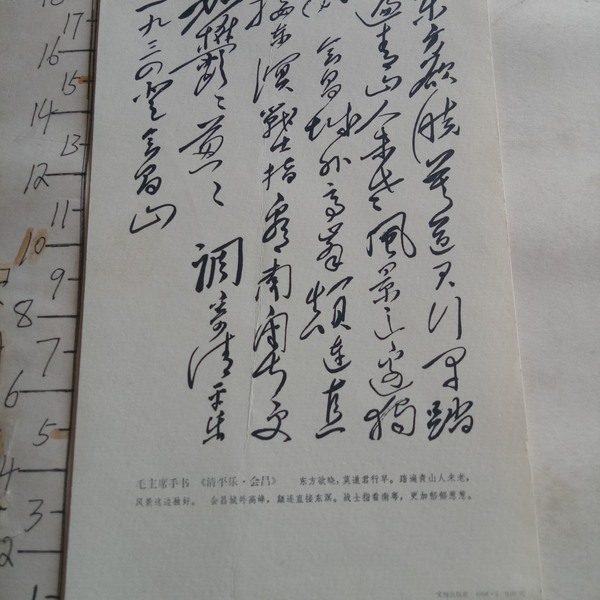 东方欲晓莫道君行早踏
遍青山人未老风景这边独
会昌城外高峰颠连直
接东溟战士指看南粤更
加欝〻葱〻 调寄清平乐
一九三四登会昌山
毛主席手书 《清平乐·会昌》 东方欲晓，莫道君行早。踏遍青山人未老，
风景这边独好。 会昌城外高峰，颠连直接东溟。战士指看南粤，更加郁郁葱葱。
17
16
15
14
13
12
11
10
9
8
7
6
5
4
3
2